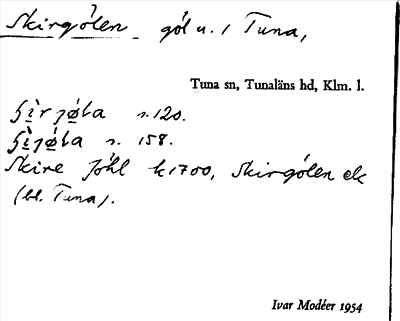 Skirgölen göl u. 1 Tuna,
Tuna sn, Tunaläns hd, Klm. l.
s. 120.
s. 158.
Skire Jöhl k 1700, Skirgölen ek
(bl. Tuna).
Ivar Modéer 1954